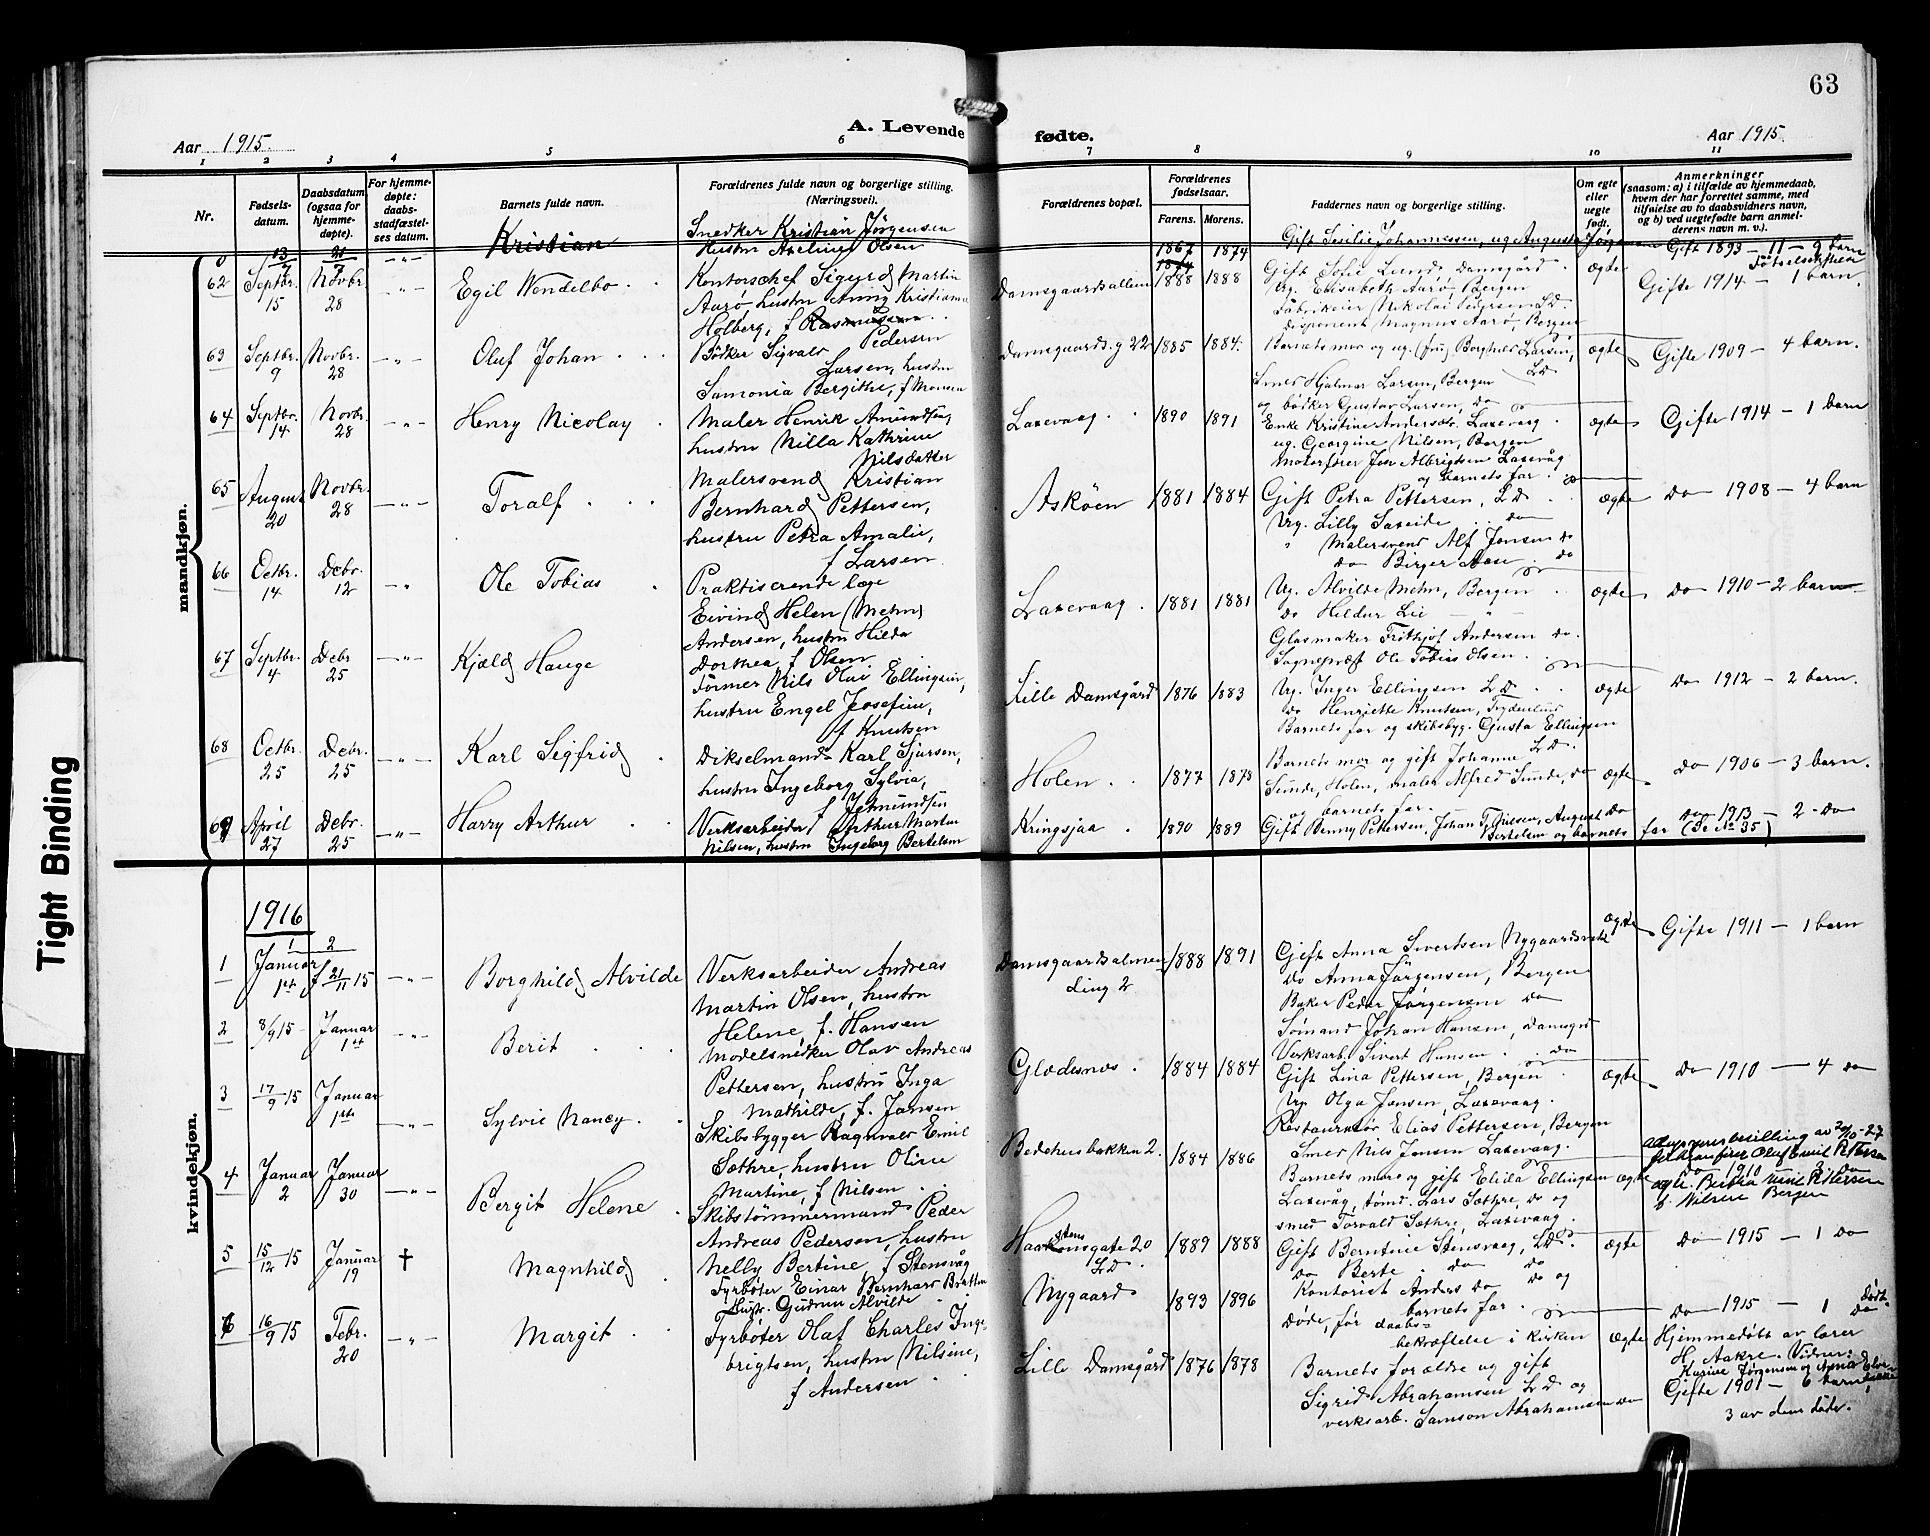 63
A. Levende fødte.
Aar 1915.
Aar 1915.
1 2 3 4 5 6 7 8 9 10 11
Nr.
Fødsels-
datum.
Daabsdatum
(ogsaa for
hjemme-
døpte).
For hjemme-
døpte:
daabs-
stadfæstel-
ses datum.
Barnets fulde navn.
Forældrenes fulde navn og borgerlige stilling.
(Næringsvei).
Forældrenes bopæl.
Forældrenes
fødselsaar.
Farens. Morens.
Faddernes navn og borgerlige stilling.
Om egte
eller
uegte
født.
Anmerkninger
(saasom: a) i tilfælde av hjemmedaab,
hvem der har forrettet samme, med
tilføielse av to daabsvidners navn,
og b) ved uegtefødte barn anmel-
derens navn m. v.).
mandkjøn.
0 13/7 21/7 -"- Kristian
Snedker Kristian Jørgensen
Hustru Axeline Olsen
1867 1874
Gift Sesilie Johannessen, ug Augusta Jørgensen
Gift 1893 - 11 - 9 barn
Fødselsattest
62 Septbr. 15 Novbr. 28 -"- Egil Wendelbo
Kontorschef Sigurd Martin
Aarø, hustru Anny Kristianne
Holberg, f Rasmussen
Damsgaardsalleen 1888 1888
Gift Sofie Lund, Damsgård
Ug. Elisabeth Aarø, Bergen
Fabrikeier Nikolai Pedersen LD.
Disponent Magnus Aarø, Bergen
ægte
Gifte 1914 - 1 barn.
63 Septbr. 9 Novbr. 28 -"- Oluf Johan
Bødker Sigvald Pedersen
Larsen, hustru
Samonia Bergithe, f Monsen
Damsgaards.g 22 1885 1884.
Barnets mor og ug. (fru) Borghild Larsen,
LD
Smed Hjalmar Larsen, Bergen
og bødker Gustav Larsen, do
ægte
Gifte 1909 - 4 barn.
64 Septbr. 14 Novbr. 28 -"- Henry Nicolay
Maler Henrik Amundsen,
hustru Nilla Kathrine
Nilsdatter
Laxevaag 1890 1891
Enke Kristine Andersdr. Laxevaag
ug. Georgine Nilsen, Bergen
Motorfører Jen Albrigtsen Laxevåg
og barnets far.
ægte
Gifte 1914 - 1 barn
65 August 20 Novbr. 28 -"- Toralf
Malersvend Kristian
Bernhard Pettersen,
hustru Petra Amalie,
f Larsen
Askøen 1881 1884
Gift Petra Pettersen, LD
Ug. Lilly Saxeide do
" Malersvend Alf Jensen do
do Birger Aase do
ægte
Do 1908 - 4 barn
66 Octbr. 14 Debr. 12 -"- Ole Tobias
Praktiserende læge
Eivind Helen (Mehn)
Andersen, hustru Hilda
Dorthea, f Olsen
Laxevaag 1881 1881
Ug. Alvilde Mehn, Bergen
Do Hildur Lie -"-
Glasmaker Frithjof Andersen Do.
Sogneprest Ole Tobias Olsen
ægte
Do 1910 - 2 barn
67 Septbr. 4 Debr 25 -"- Kjæld Hauge
Former Nils Olai Ellingsen,
hustru Engel Josefine,
f Knutsen
Lille Damsgård 1876 1883
Ug. Inger Ellingsen LD
Do Henriette Knutsen, Frydenlund
Barnets far og skibsbyg. Gjusta Ellingsen
LD.
ægte
Do 1912 - 2 barn.
68 Octbr. 25 Debr. 25 -"- Karl Sigfrid
Dikselmand Karl Sjursen,
hustru Ingeborg Sylvia,
f Jetmundsen
Holen 1877 1878
Barnets mor og gift Johanne
Sunde, Holen, maler Alfred Sunde, do
og barnets far.
ægte
Do 1906 - 3 barn.
69 April 27 Debr. 25 -"- Harry Arthur
Verksarbeider Arthur Martin
Nilsen, hustru Ingeborg Bertelsen
Kringsjaa 1890 1889
Gift Benny Pettersen, Johan T. Nilsen, August Do
Bertelsen og barnets far
Do 1913 - 2 Do
(Se No 35)
1916
kvindekjøn.
1 Januar 1st 2/ 21/11 15 -"- Borghild Alvilde
Verksarbeider Andreas
Martin Olsen, hustru
Helene, f. Hansen
Damsgaardsalmen-
ding 2 1888 1891
Gift Anna Sivertsen Nygaardsvik
Do Anna Jørgensen, Bergen
Baker Peder Jørgensen Do
Sømand Johan Hansen, Damsgrd
Verksarb. Sivert Hansen do
ægte
Gifte 1911 - 1 barn
2 8/9 15 Januar 1st -"- Berit
Modelsnedker Olav Andreas
Pettersen, hustru Inga
Mathilde, f. Jansen
Gladesmos 1884 1884
Gift Lina Pettersen, Bergen
Ug Olga Jansen, Laxevaag.
Restauratør Elias Pettersen, Bergen
Smed Nils Jensen Laxevaag.
ægte
Do 1910 - 4 do
3 17/9 15 Januar 1st -"- Sylvie Nancy
Skibsbygger Ragnvald Emil
Sæthre, hustru Oline
Martine, f Nilsen
Bedehusbakken 2. 1884 1886
Barnets mor og gift Elida Ellingsen
Laxevåg, tømd. Lars Sæthre, do og
smed Torvald Sæthre, Laxevaag.
ægte
av 20/10-27
Oluf Emil Pettersen
Do 1910 - 3. Do
f. Nilsen Bergen
4 Januar 2 Januar 30 -"- Bergit Helene
Skibstømmermand Peder
Andreas Pedersen, hustru
Nelly Bertine, f Stensvåg
Haakonsgate 20
LD. 1889 1888
Gift Berntine Stensvaag, LD
do Berte do do
Kontorist Anders do do og
barnets far
ægte
Do 1915 - 1 Do
5 15/12 15 Januar 19 † Magnhild
Fyrbøter Einar Bernhard Bratten
Hustr. Gudrun Alvilde
Nygaard 1893 1896
Døde, før daabs-
bekræftelse i kirken
ægte
Do 1915 - 1 Do
Døbt
Hjemmedøbt av lærer
H. Aakre. Vidner:
Karine Jørgensen og Anna
6 16/9 15 Febr. 20 -"- Margit
Fyrbøter Olaf Charles Inge-
brigtsen, hustru Nilsine,
f Andersen
Lille Damsgård 1876 1878
Barnets forældre og gift
Sigrid Abrahamsen LD og
verksarb. Samson Abrahamsen do
Gifte 1901 - 6 barn
3 av dem døde.
Tight Binding